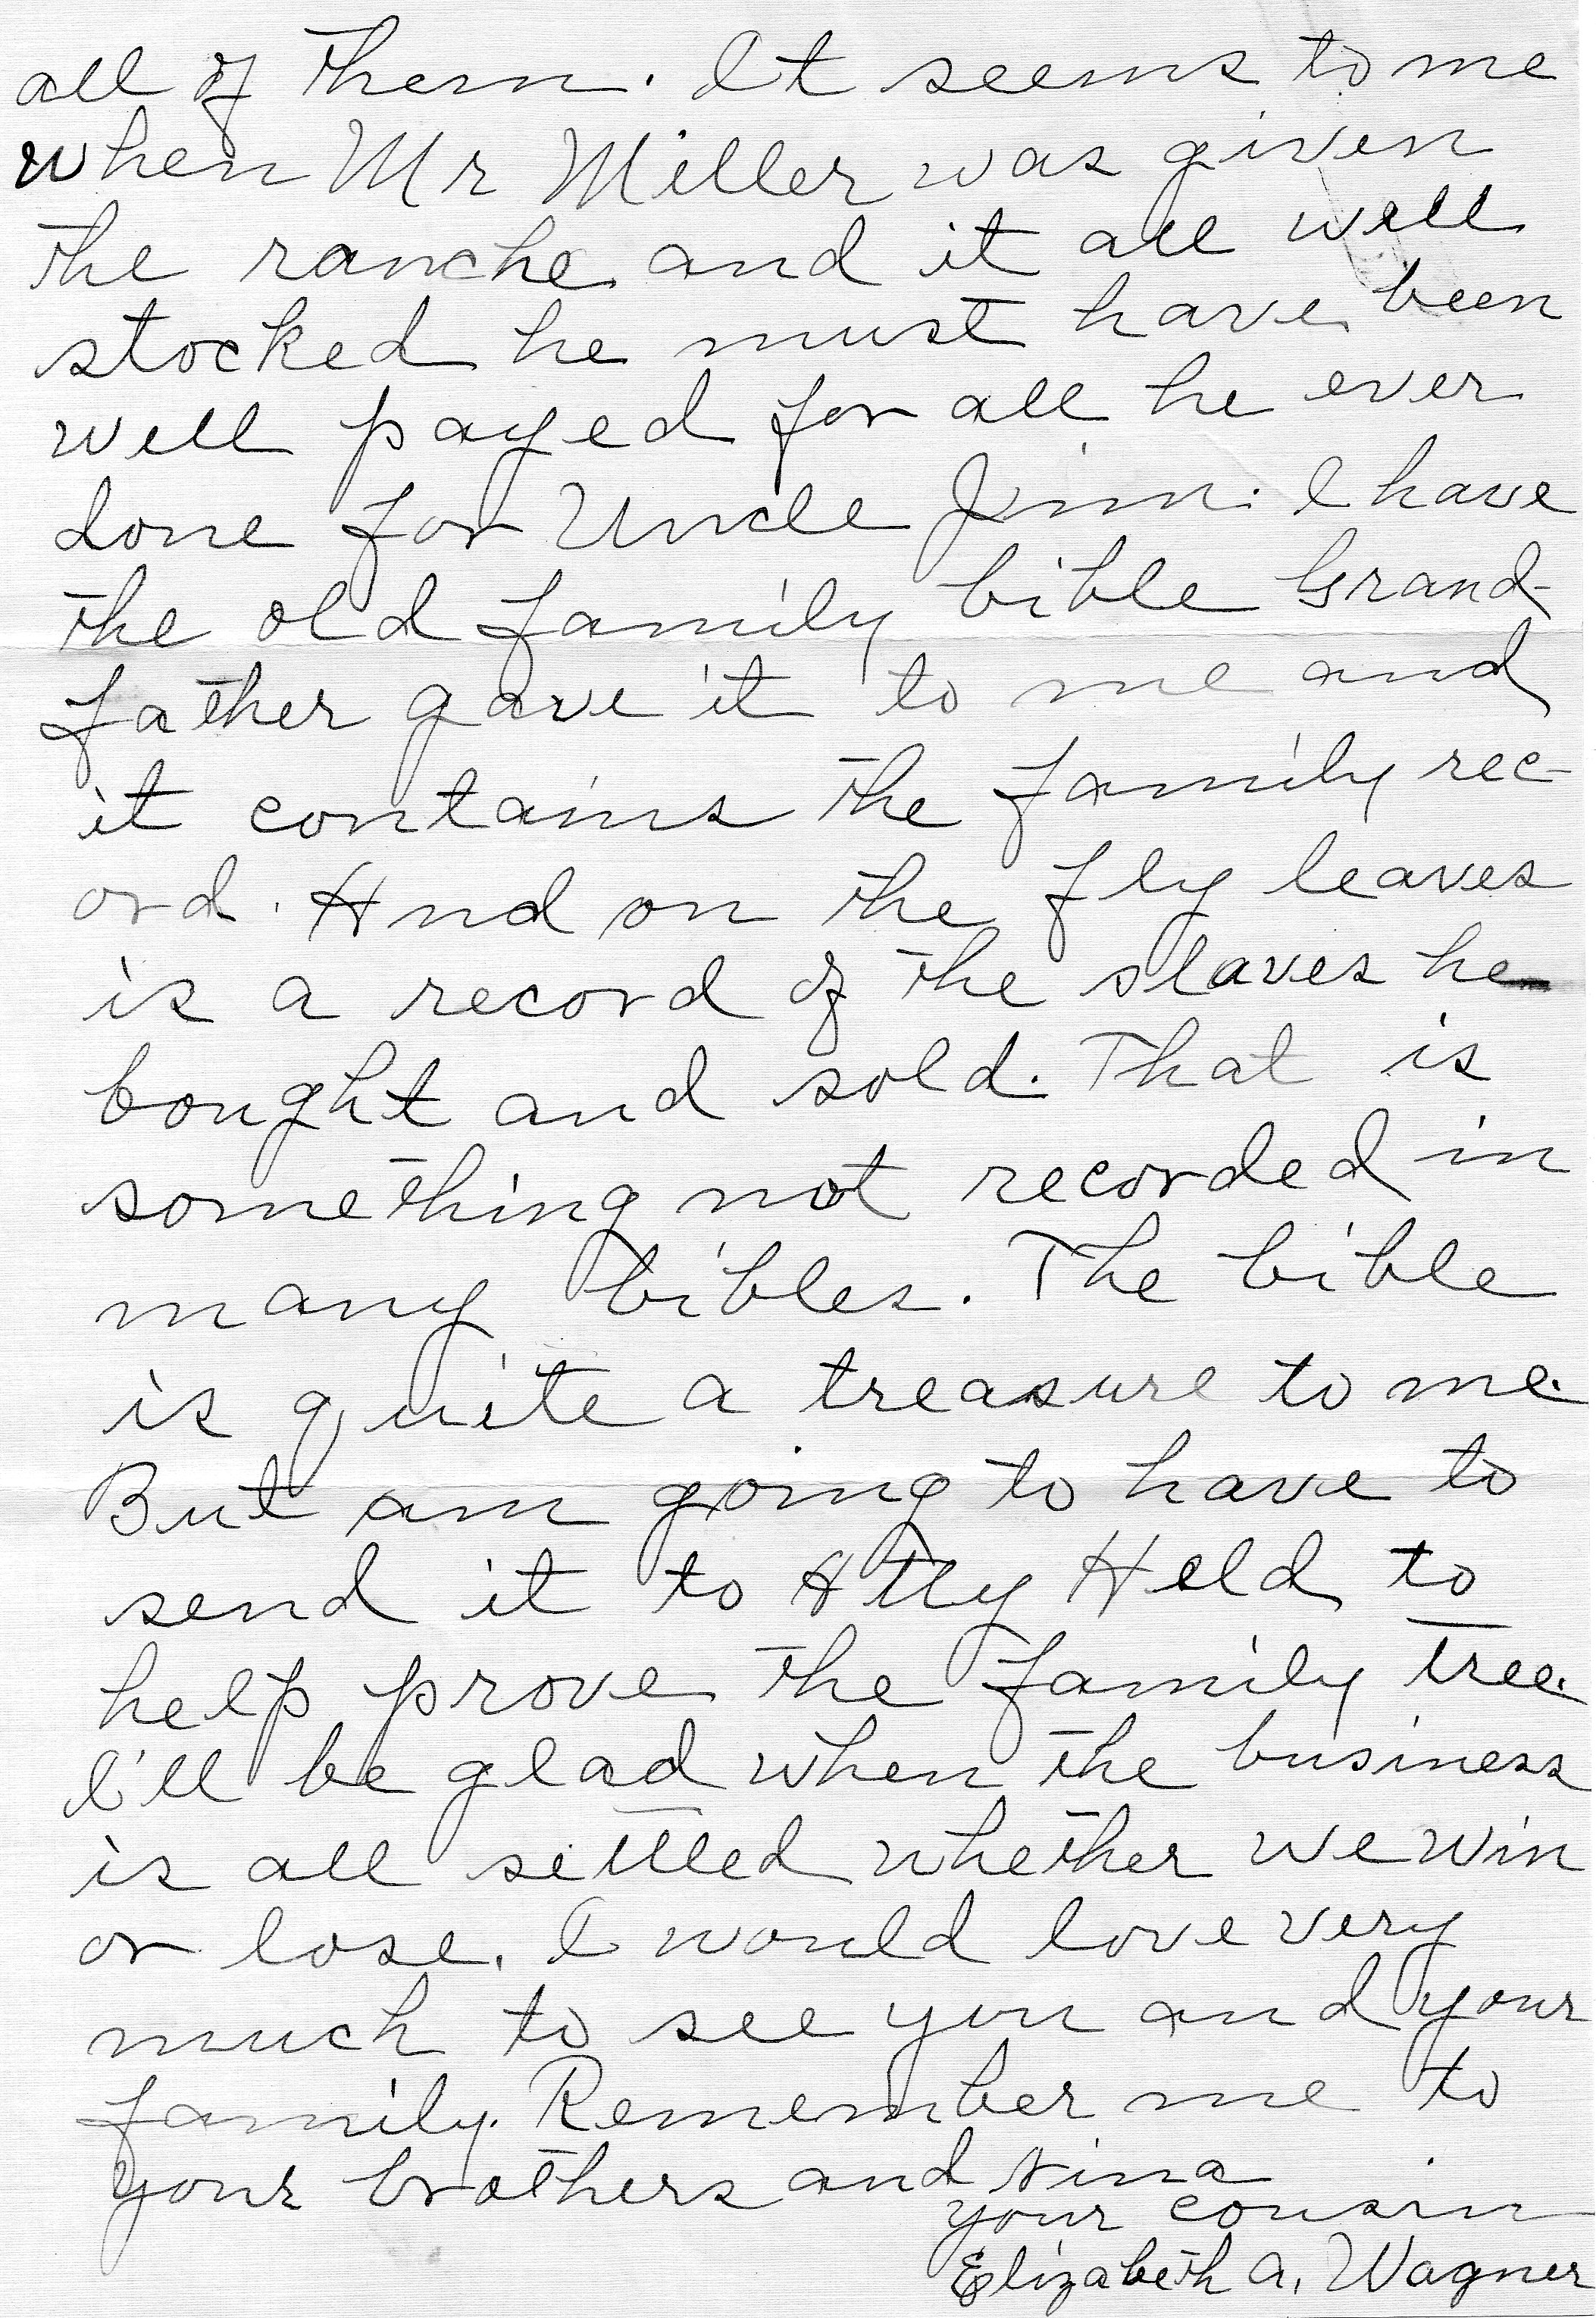 all of them. It seems to me
when Mr Miller was given
the ranche and it all well
stocked he must have been
well payed for all he ever
done for Uncle Jim. I have
the old family bible Grand-
father gave it to me and
it contains the family rec-
ord. And on the fly leaves
is a record of the slaves he
bought and sold. That is
something not recorded in
many bibles. The bible
is quite a treasure to me.
But am going to have to
send it to Atty Held to
help prove the family tree.
I'll be glad when the business
is all settled whether we win
or lose. I would love very
much to see you and your
family. Remember me to
your brothers and Nina
your cousin
Elizabeth A. Wagner